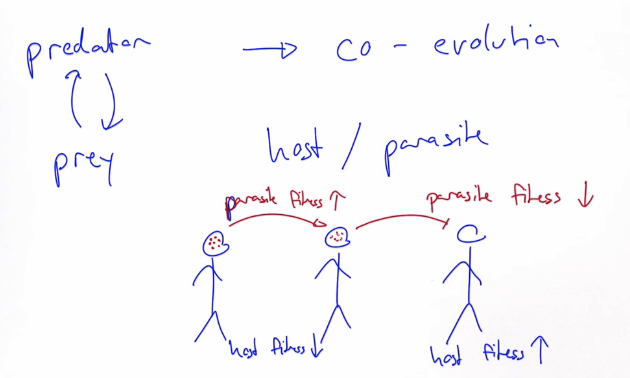 predator → co - evolution
prey
host / parasite
parasite fitness ↑
parasite fitess ↓
host fitness ↓
host fitness ↑